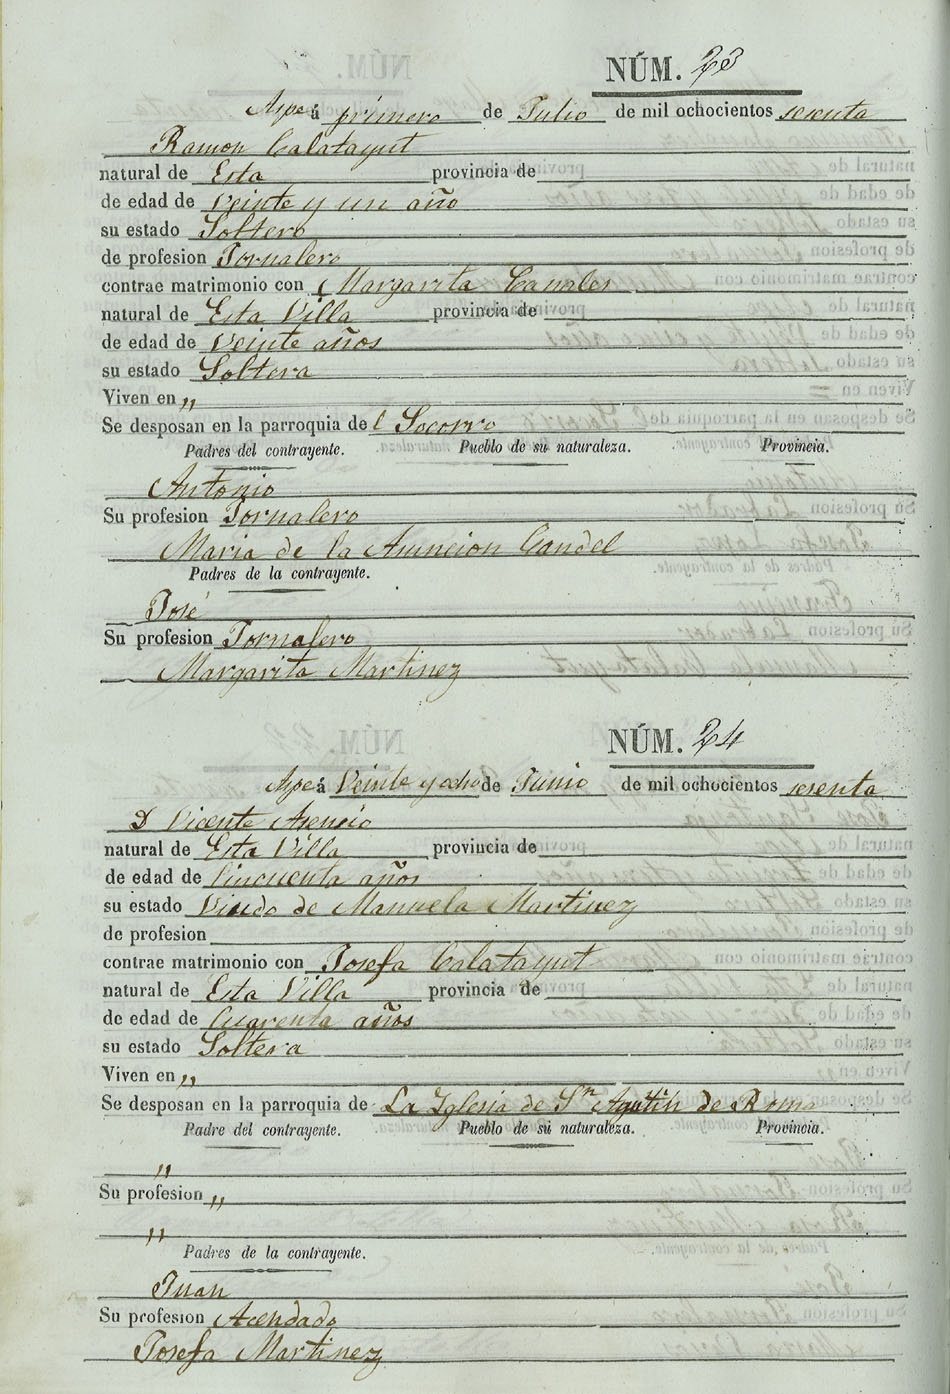 NÚM. 23
Aspe á primero de Julio de mil ochocientos sesenta
Ramon Calatayut
natural de Esta provincia de
de edad de Veinte y un año
su estado Soltero
de profesion Jornalero
contrae matrimonio con Margarita Canales
natural de Esta Villa provincia de
de edad de Veinte años
su estado Soltera
Viven en "
Se desposan en la parroquia de l Socorro
Padres del contrayente. Pueblo de su naturaleza. Provincia.
Antonio
Su profesion Jornalero
Maria de la Asuncion Candel
Padres de la contrayente.
José
Su profesion Jornalero
Margarita Martinez
NÚM. 24
Aspe á Veinte y ocho de Junio de mil ochocientos sesenta
D Vicente Asencio
natural de Esta Villa provincia de
de edad de Cincuenta años
su estado Viudo de Manuela Martinez
de profesion
contrae matrimonio con Josefa Calatayut
natural de Esta Villa provincia de
de edad de Cuarenta años
su estado Soltera
Viven en "
Se desposan en la parroquia de La Iglesia de Sn Agutin de Roma
Padre del contrayente. Pueblo de su naturaleza. Provincia.
"
Su profesion "
"
Padres de la contrayente.
Juan
Su profesion Acendado
Josefa Martinez